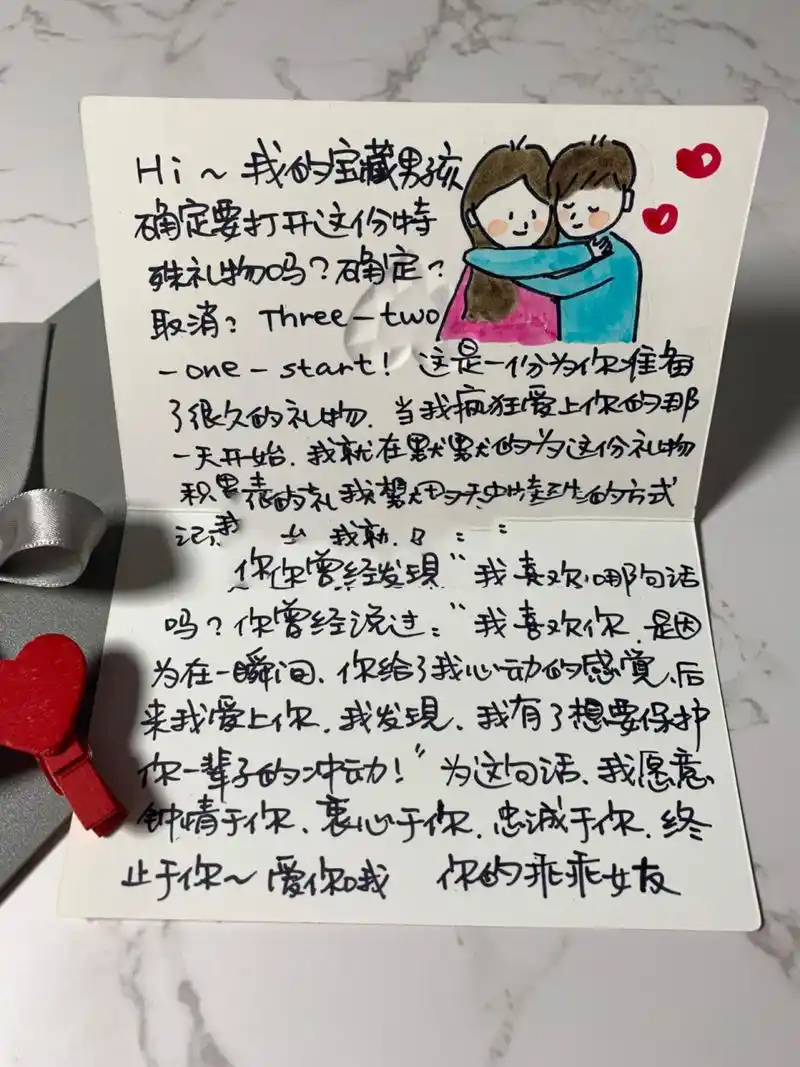 Hi~我的宝藏男孩
确定要打开这份特
殊礼物吗？确定？
取消？Three-two
-one-start！这是一份为你准备
了很久的礼物.当我疯狂爱上你的那
一天开始.我就在默默的为这份礼物
积 的礼我 的方式
记 我
你你曾经发現"我喜欢 哪句话
吗？你曾经说过："我喜欢你.是因
为在一瞬间、你给了我心动的感覚、后
来我爱上你.我发現、我有了想要保护
你一辈子的冲动！"为这句话、我愿意
钟情于你、衷心于你.忠诚于你.终
止于你~爱你哦 你的乖乖女友